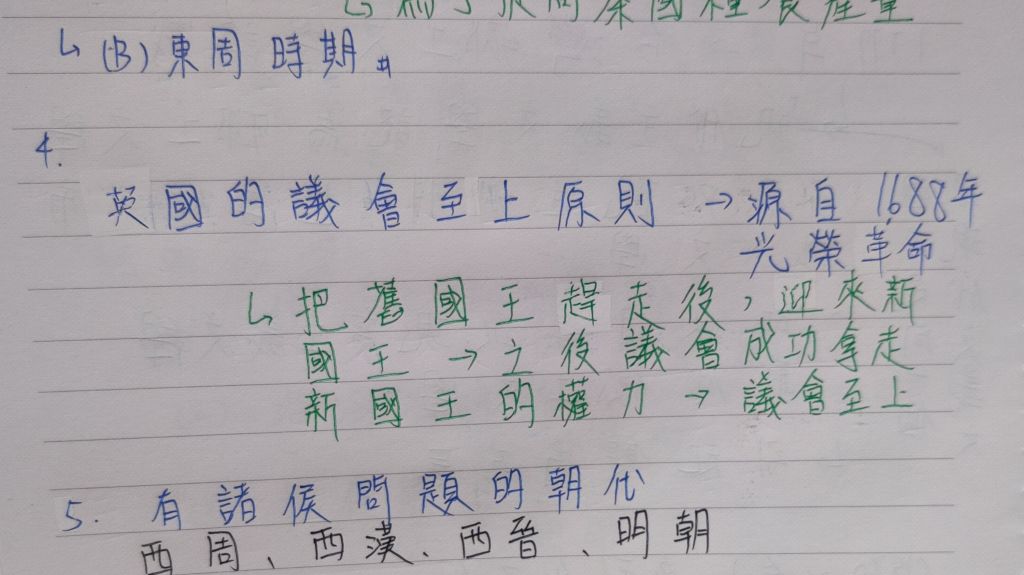 ↳ 為了提高秦國糧食產量
↳ (B) 東周時期#
4.
英國的議會至上原則 → 源自 1688年
光榮革命
↳ 把舊國王趕走後，迎來新
國王 → 之後議會成功拿走
新國王的權力 → 議會至上
5. 有諸侯問題的朝代
西周、西漢、西晉、明朝